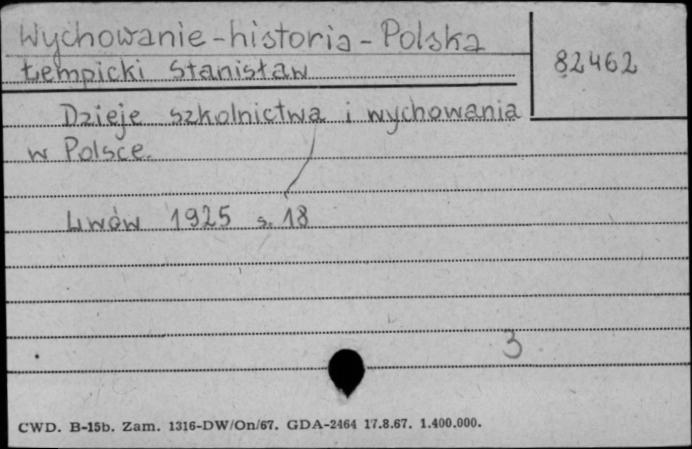 Wychowanie-historia-Polska
82462
Łempicki Stanisław
Dzieje szkolnictwa i wychowania
w Polsce.
Lwów 1925 s. 18
3
CWD. B-15b. Zam. 1316-DW/On/67. GDA-2464 17.8.67. 1.400.000.